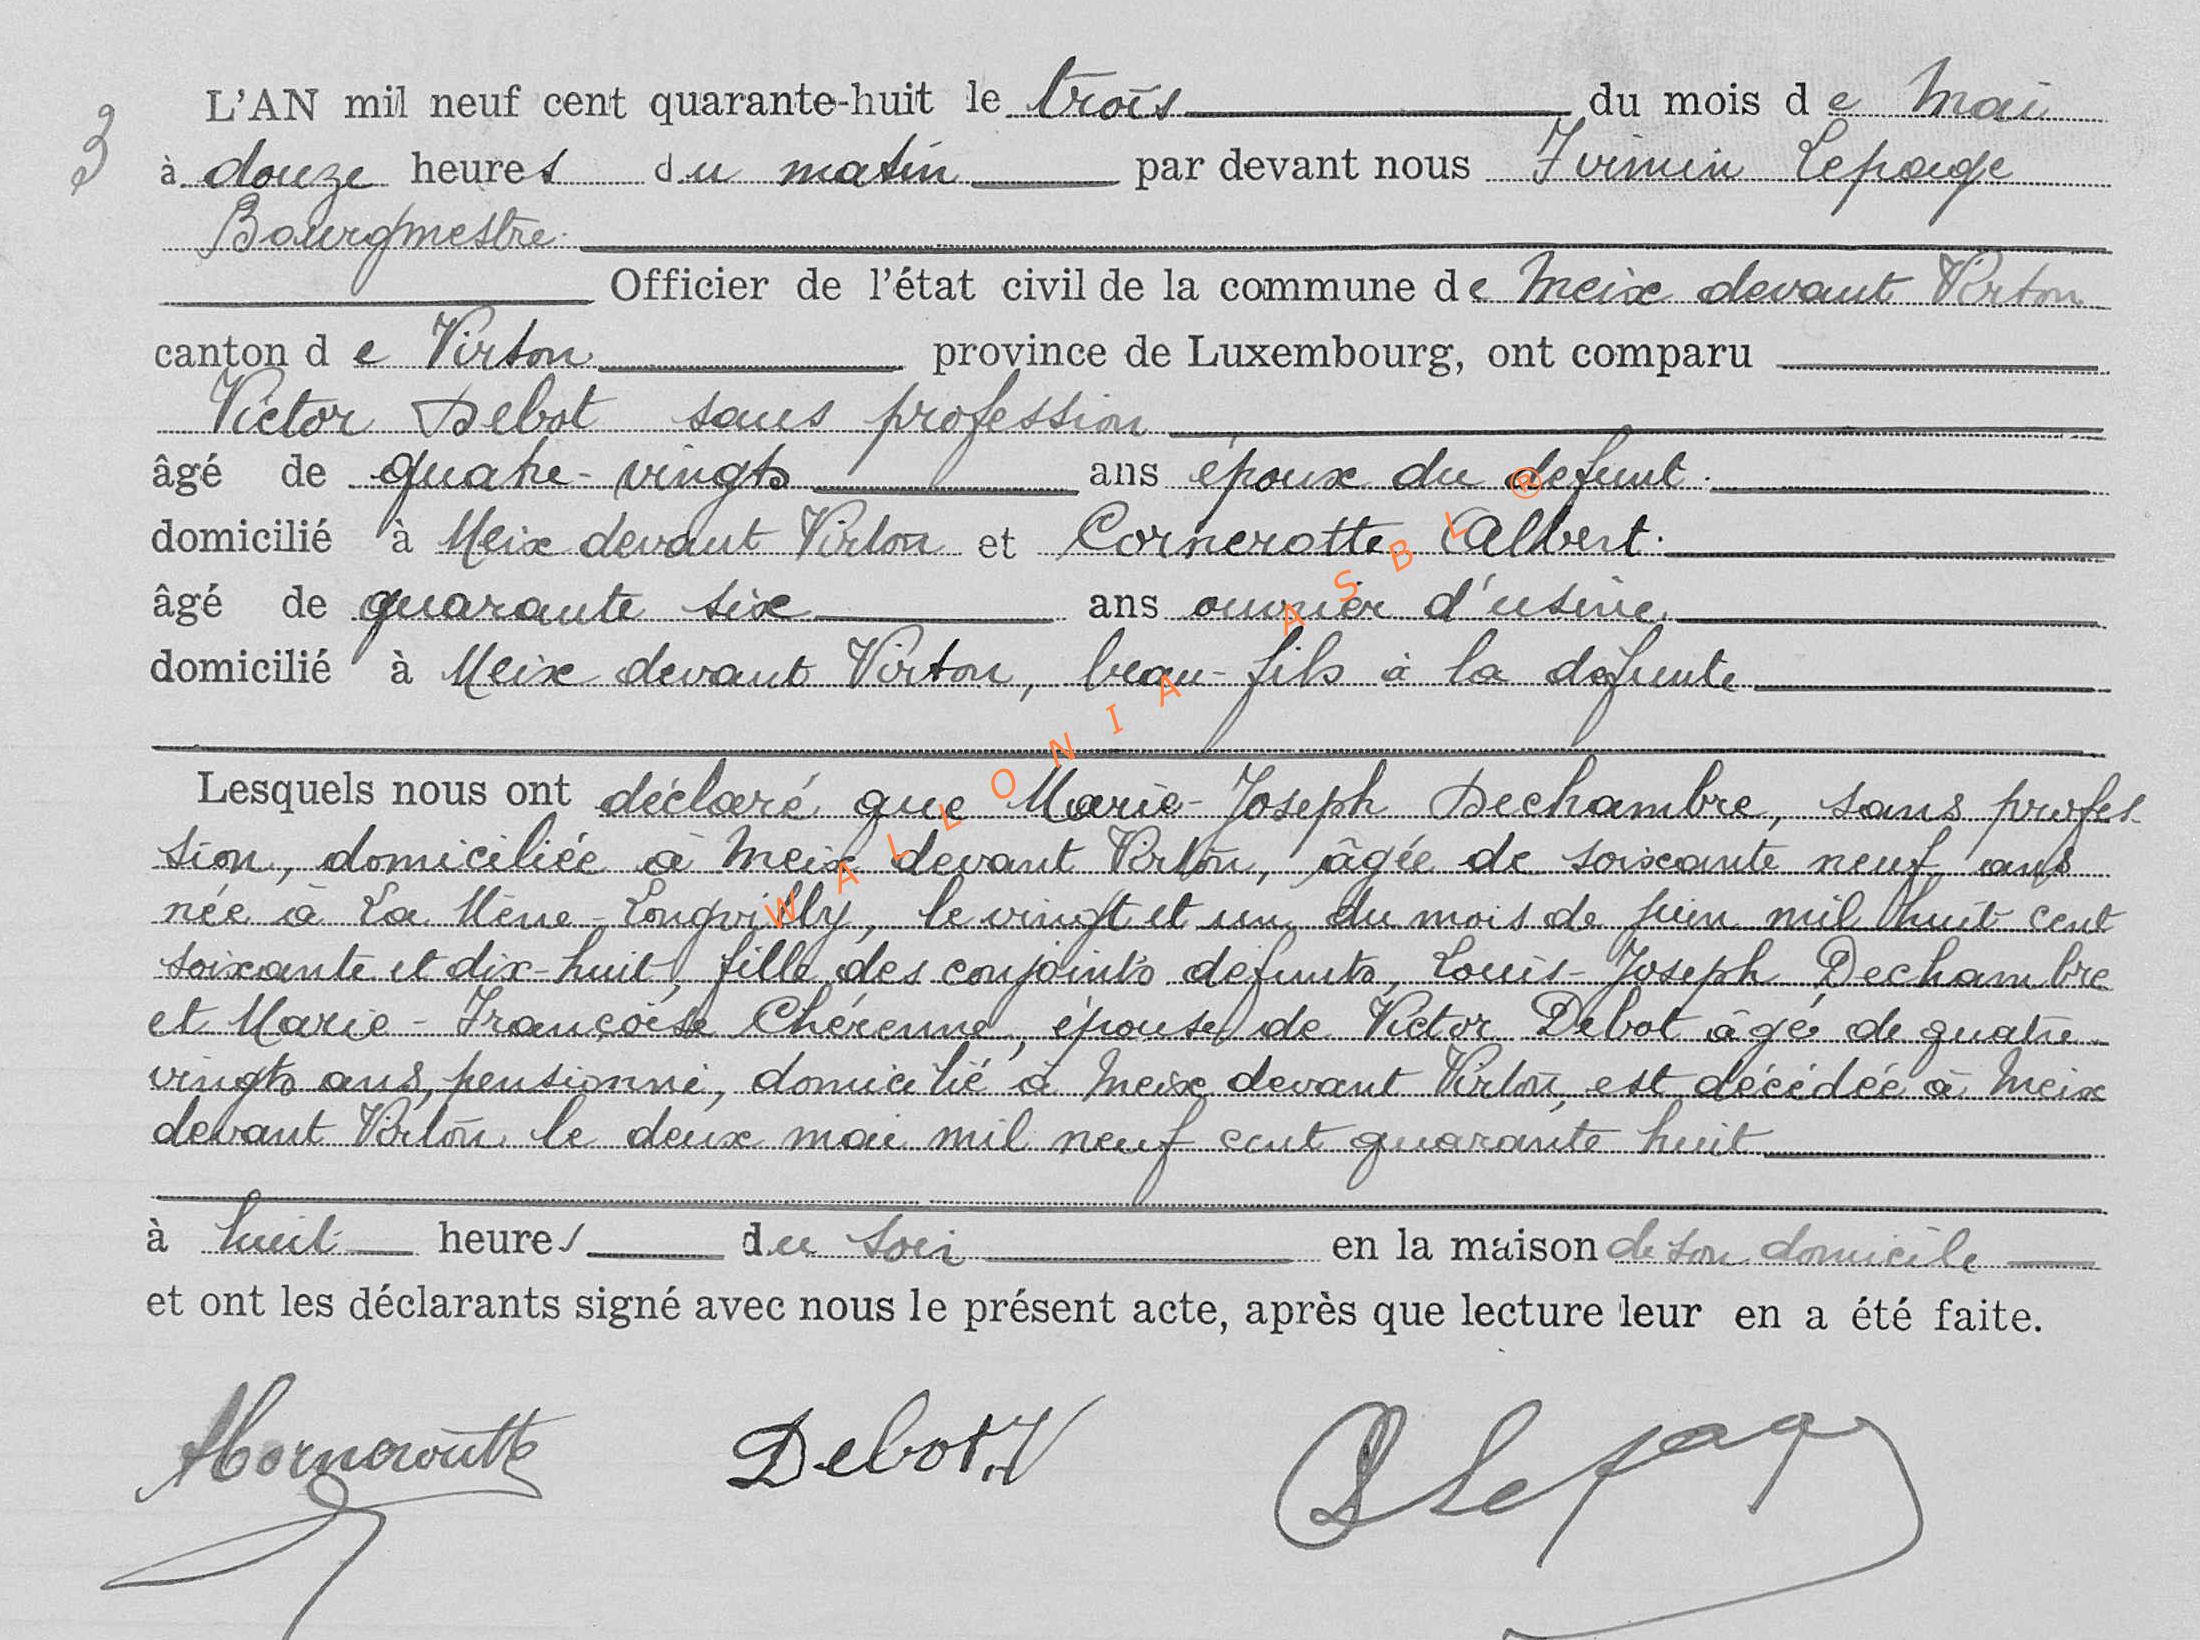 L'AN mil neuf cent quarante-huit le trois du mois de Mai
3
à douze heures du matin par devant nous Lepage
Bourgmestre.
Officier de l'état civil de la commune de Meix devant Virton
canton de Virton province de Luxembourg, ont comparu
Victor Debot sans profession
âgé de quatre-vingts ans époux du defunt.
domicilié à Meix devant Virton et Cornerotte Albert.
âgé de quarante six ans ouvrier d'usine
domicilié à Meix devant Virton, beau-fils à la défunte
Lesquels nous ont déclaré que Marie-Joseph Dechambre, sans profes-
sion, domiciliée à Meix devant Virton, âgée de soixante neuf ans
née à La Longvilly, le vingt et un du mois de juin mil huit cent
soixante et dix-huit, fille des conjoints defunts, Louis-Joseph Dechambre
et Marie-Françoise Chérenne, épouse de Victor Debot âgé de quatre-
vingts ans, pensionné, domicilié à Meix devant Virton, est décédée à Meix
devant Virton le deux mai mil neuf cent quarante huit
à huit heures du soir en la maison de son domicile
et ont les déclarants signé avec nous le présent acte, après que lecture leur en a été faite.
Debot.V
WALLONIA ASBL ®